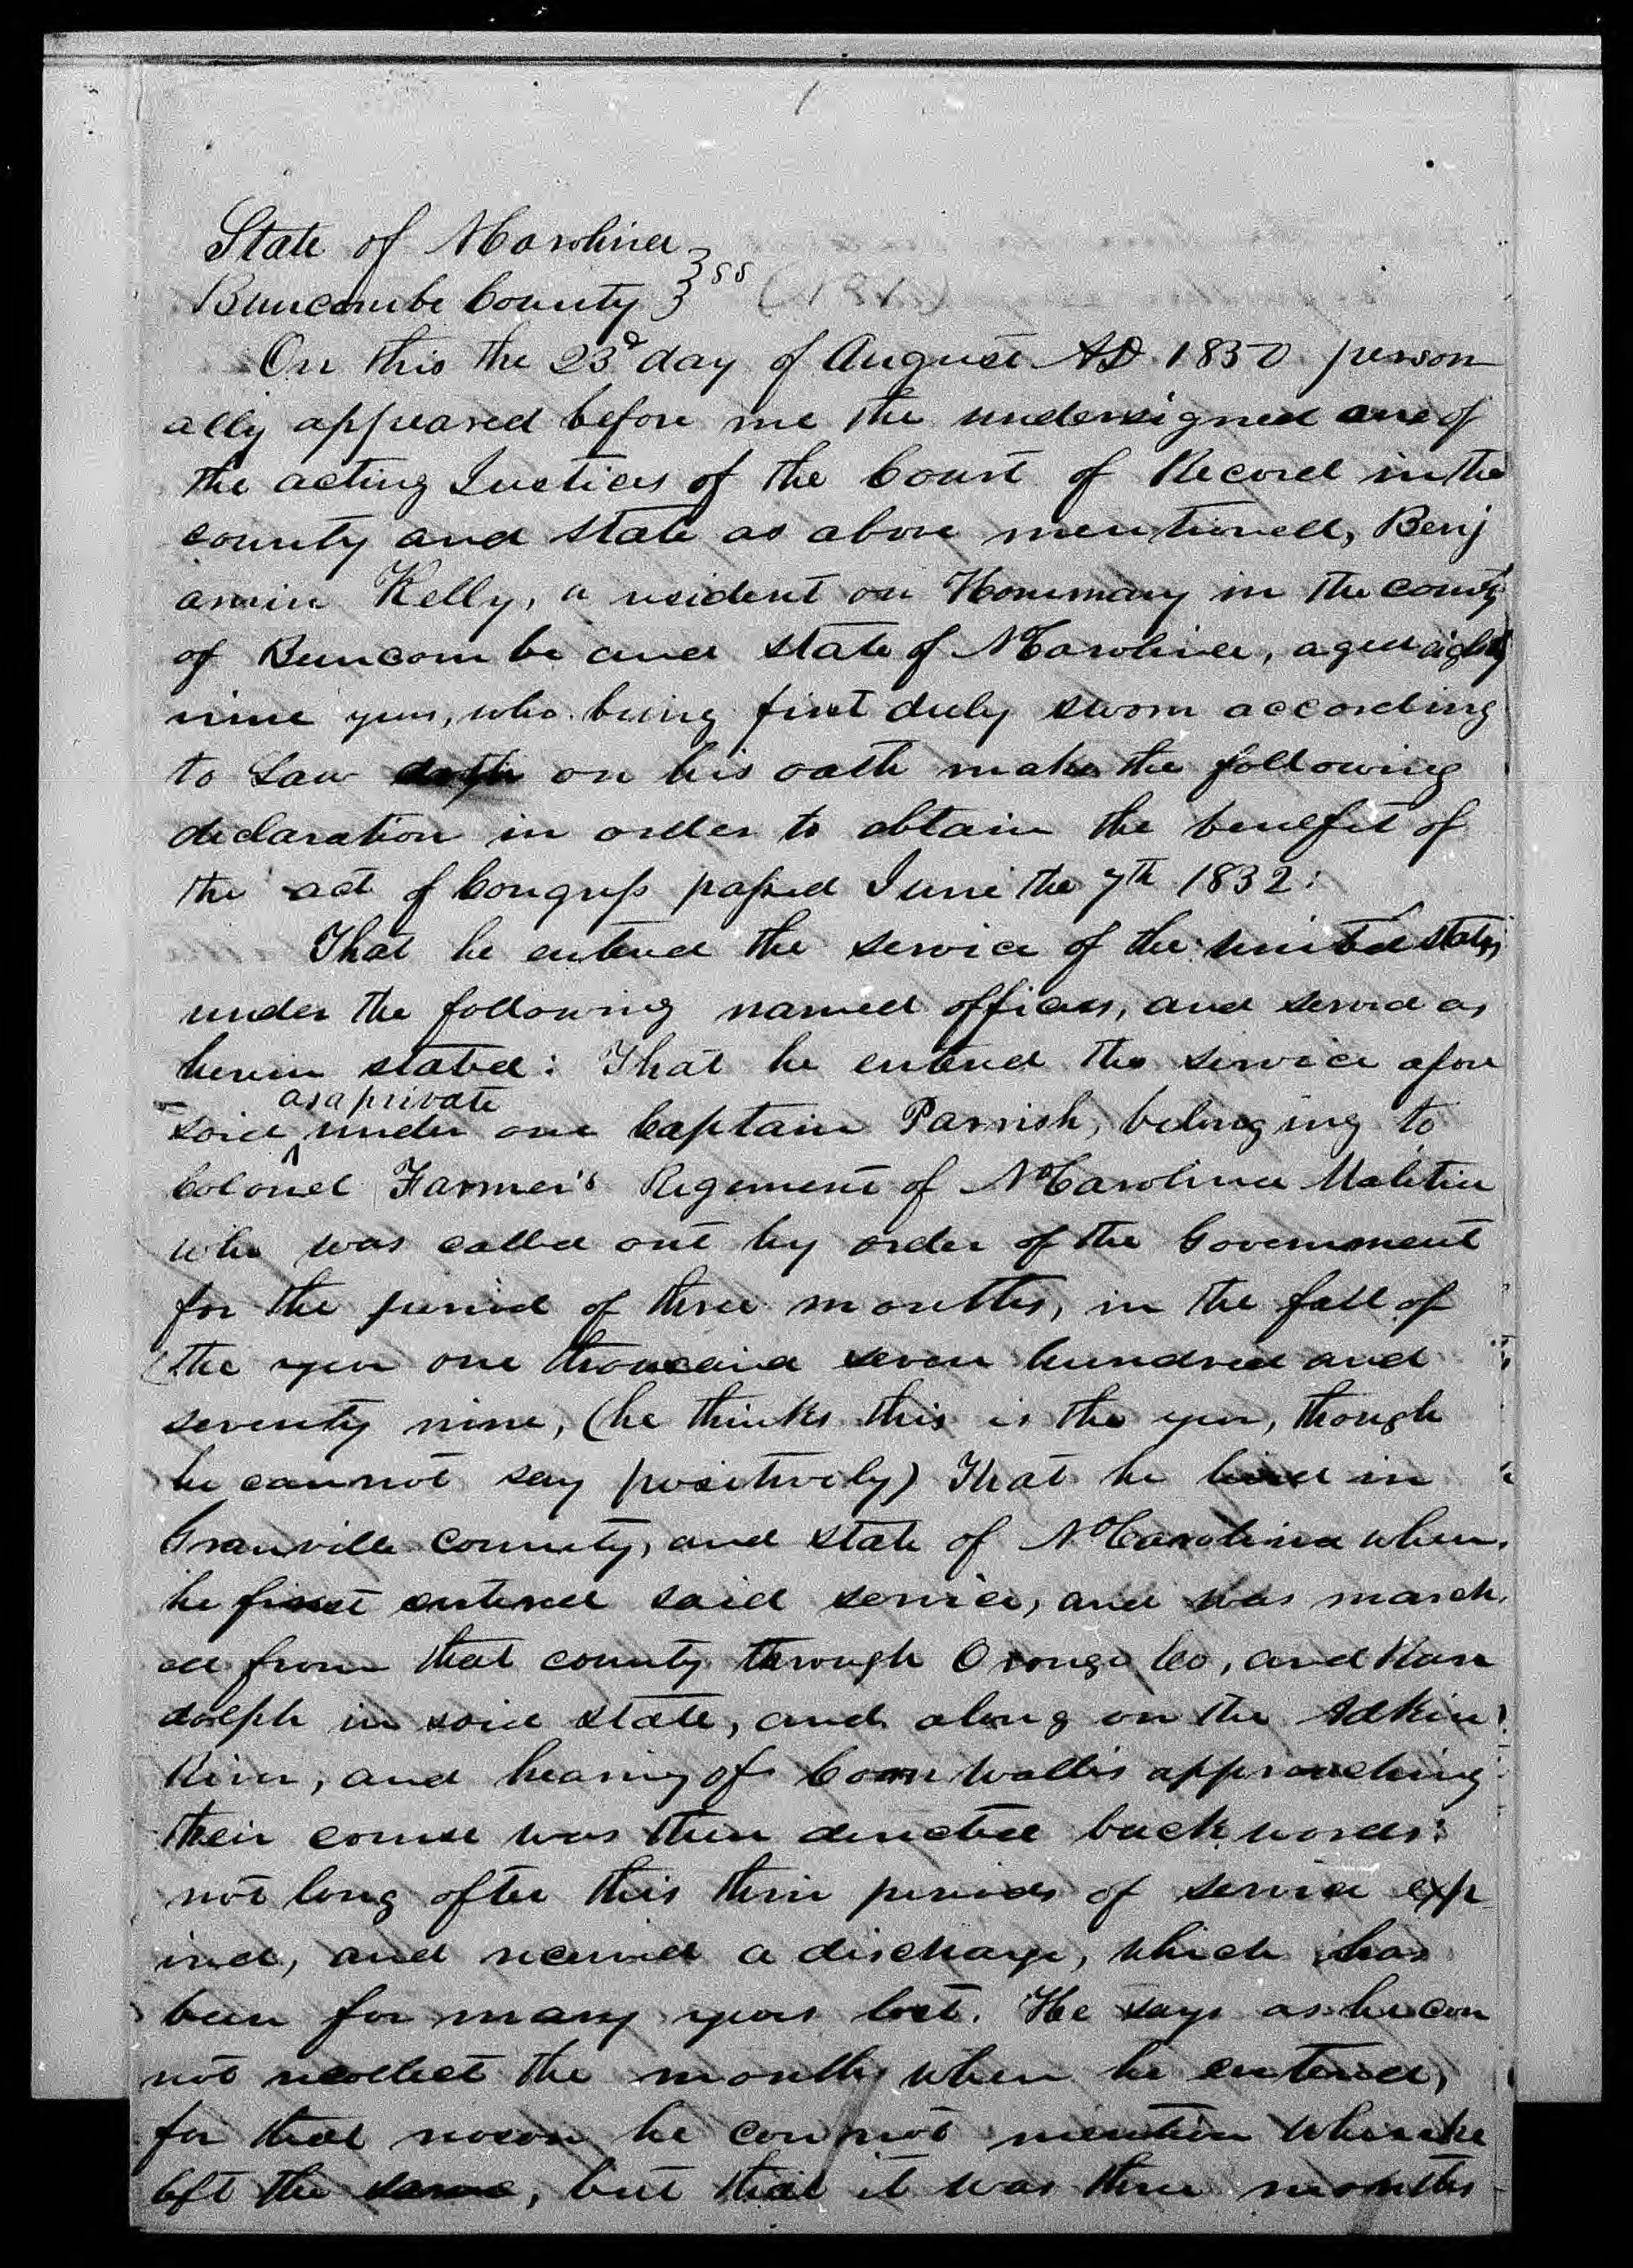 State of N Carolina
Buncombe County } ss
On this the 23d day of August AD 1850 person
ally appeared before me the undersigned one of
the acting Justices of the Court of Record in the
county and state as above mentioned, Benj
amin Kelly, a resident on Hommany in the county
of Buncombe and state of N Carolina, aged eighty
nine years, who being first duly sworn according
to Law doth on his oath make the following
declaration in order to obtain the benefit of
the act of Congress passed June the 7th 1832:
That he entered the service of the united states
under the following named officers, and served as
herein stated: That he entered the service afore
as a private
said under one Captain Parrish, belonging to
Colonel Farmer's Regement of No Carolina Malitia
who was called out by order of the Government
for the period of three months, in the fall of
the year one thousand seven hundred and
seventy nine, (he thinks this is the year, though
he cannot say positively) That he lived in
Granville County, and state of No Carolina when
he first entered said service, and was march
ed from that county through Orange Co, and Ran
dolph in said state, and along on the Adkin
River, and hearing of Cornwallis approaching
their course was then directed backwords:
not long after this their periods of service exp
ired, and received a discharge, which has
been for many years lost. He says as he can
not recollect the months when he entered,
for that reason he cannot mention when he
left the same, but that it was three months